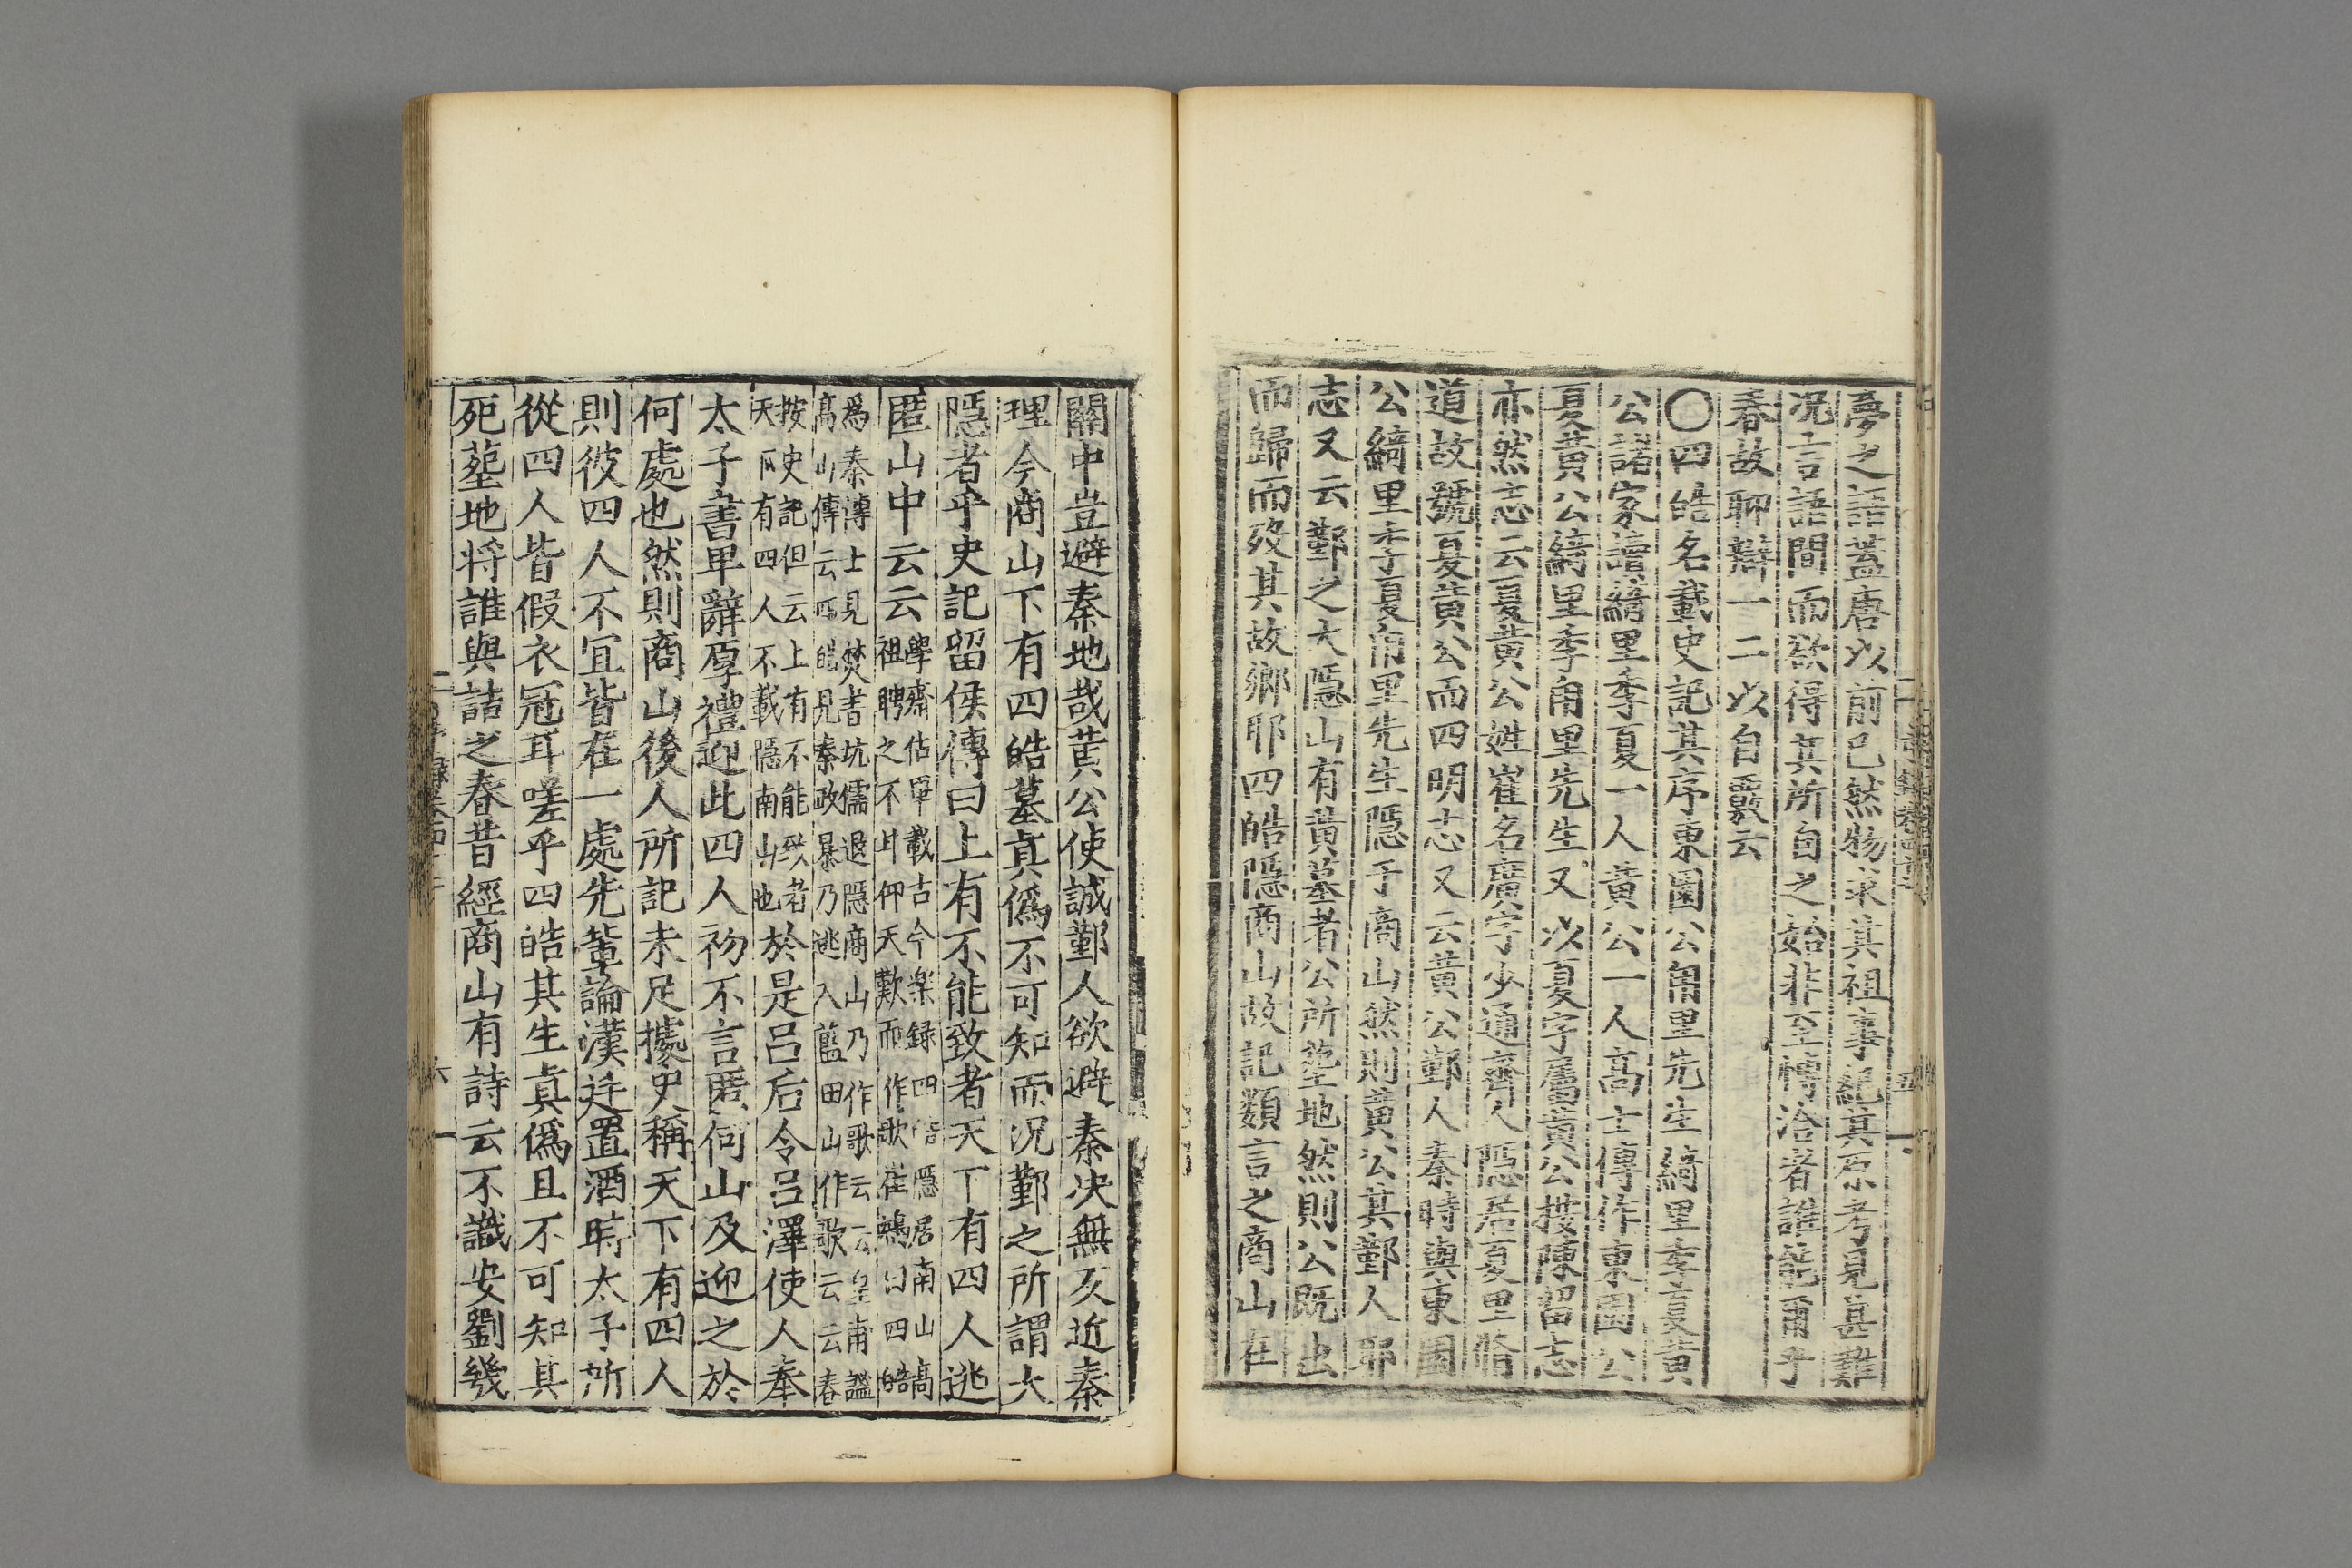 夢之語蓋唐以前已然物求其祖事紀其原考見甚難
况言語間而欲得其所自之始非至愽洽者誰能爾乎
春故聊辯一二以自覈云
〇四皓名載史記其序東園公甪里先生綺里季夏黄
公諸家讀綺里季夏一人黄公一人高士傳作東園公
夏黄公綺里季甪里先生又以夏字屬黄公按陳留志
亦然志云夏黄公姓崔名廣字少通齊人隱居夏里脩
道故號夏黄公而四明志又云黄公鄞人秦時與東園
公綺里季夏甪里先生隱于商山然則黄公其鄞人耶
志又云鄞之大隱山有黄墓者公所塟地然則公既出
而歸而殁其故鄉耶四皓隱商山故記類言之商山在
關中豈避秦地哉黄公使誠鄞人欲避秦决無反近秦
理今商山下有四皓墓真僞不可知而况鄞之所謂大
隱者乎史記留侯傳曰上有不能致者天下有四人逃
匿山中云云
學齋佔畢載古今樂録四皓隱居南山高
祖聘之不甘仰天歎而作歌崔鴻曰四皓
爲秦博士見焚書坑儒退隱商山乃作歌云云皇甫謐
高士傳云四皓見秦政暴乃逃入藍田山作歌云云春
按史記但云上有不能致者
天下有四人不載隱南山也
於是吕后令吕澤使人奉
太子書卑辭厚禮迎此四人初不言匿何山及迎之於
何處也然則商山後人所記未足據史稱天下有四人
則彼四人不宜皆在一處先軰論漢廷置酒時太子所
從四人皆假衣冠耳嗟乎四皓其生真僞且不可知其
死塟地将誰與詰之春昔經商山有詩云不識安劉幾
六